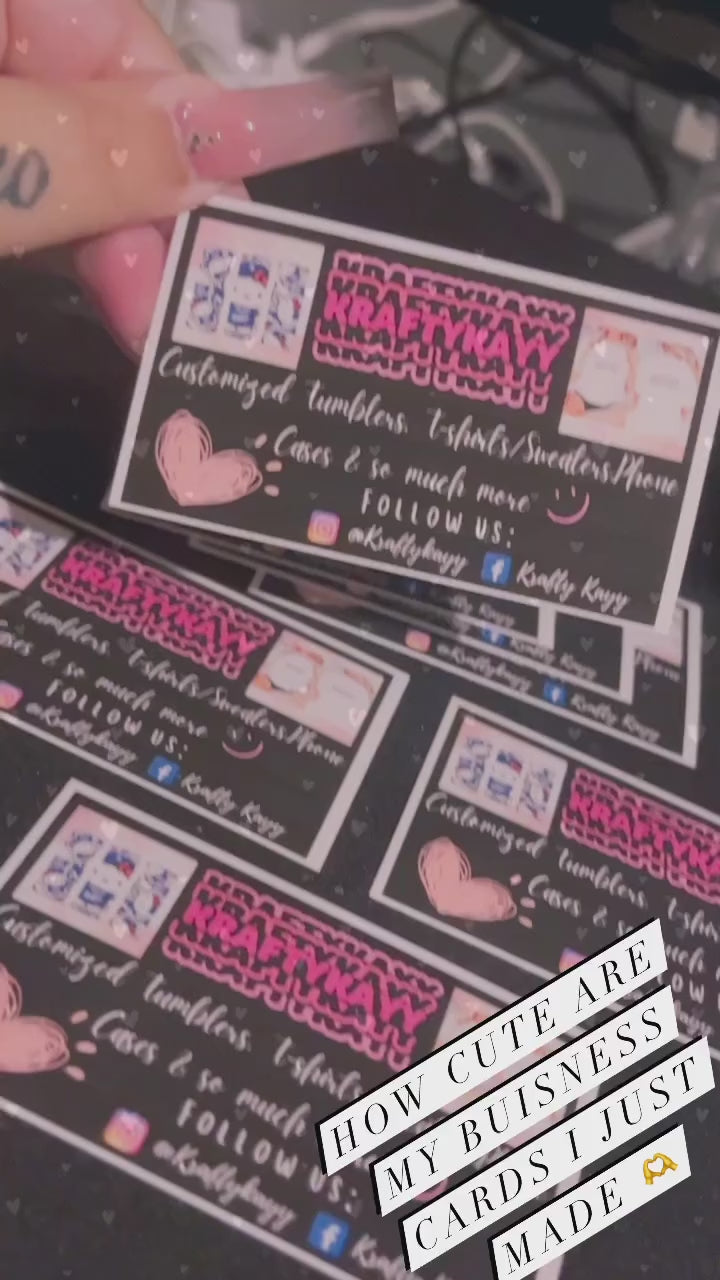 KRAFTYKAYY
KRAFTYKAYY
KRAFTYKAYY
Customized tumblers, t-shirts/Sweaters/Phone
Cases & so much more
FOLLOW US:
@Kraftykayy Krafty Kayy
Krafty Kayy
@Kraftykayy Krafty Kayy
Krafty Kayy
KRAFTYKAYY
tumblers, t-shirts/Sweaters/Phone
Cases & so much more
FOLLOW US:
@Kraftykayy Krafty Kayy
KRAFTYKA
Customized tumblers, t-shir
Cases & so much
KRAFTYKAYY
Customized tumblers, t-shirts
Cases & so much
FOLLOW US:
@Kraftykayy
HOW CUTE ARE
MY BUISNESS
CARDS I JUST
MADE 🫶